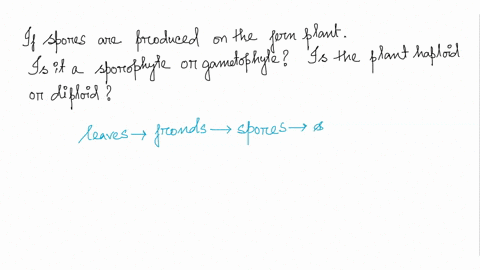 If spores are produced on the fern plant.
Is it a sporophyte or gametophyte? Is the plant haploid
or diploid?
leaves → fronds → spores → s